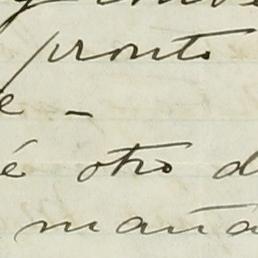 pronto
e -
é otro d
maña